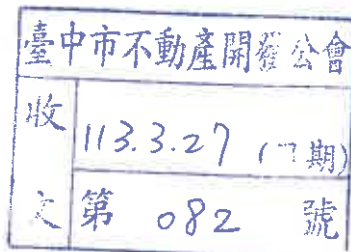 臺中市不動產開發公會
收文
113.3.27
期)
第 082 號